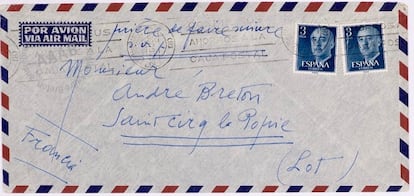 POR AVION
VIA AIR MAIL
Prière de faire suivre
3
ESPAÑA
3
ESPAÑA
Monsieur
André Breton
Saint Cirq la Popie
(Lot)
Francia